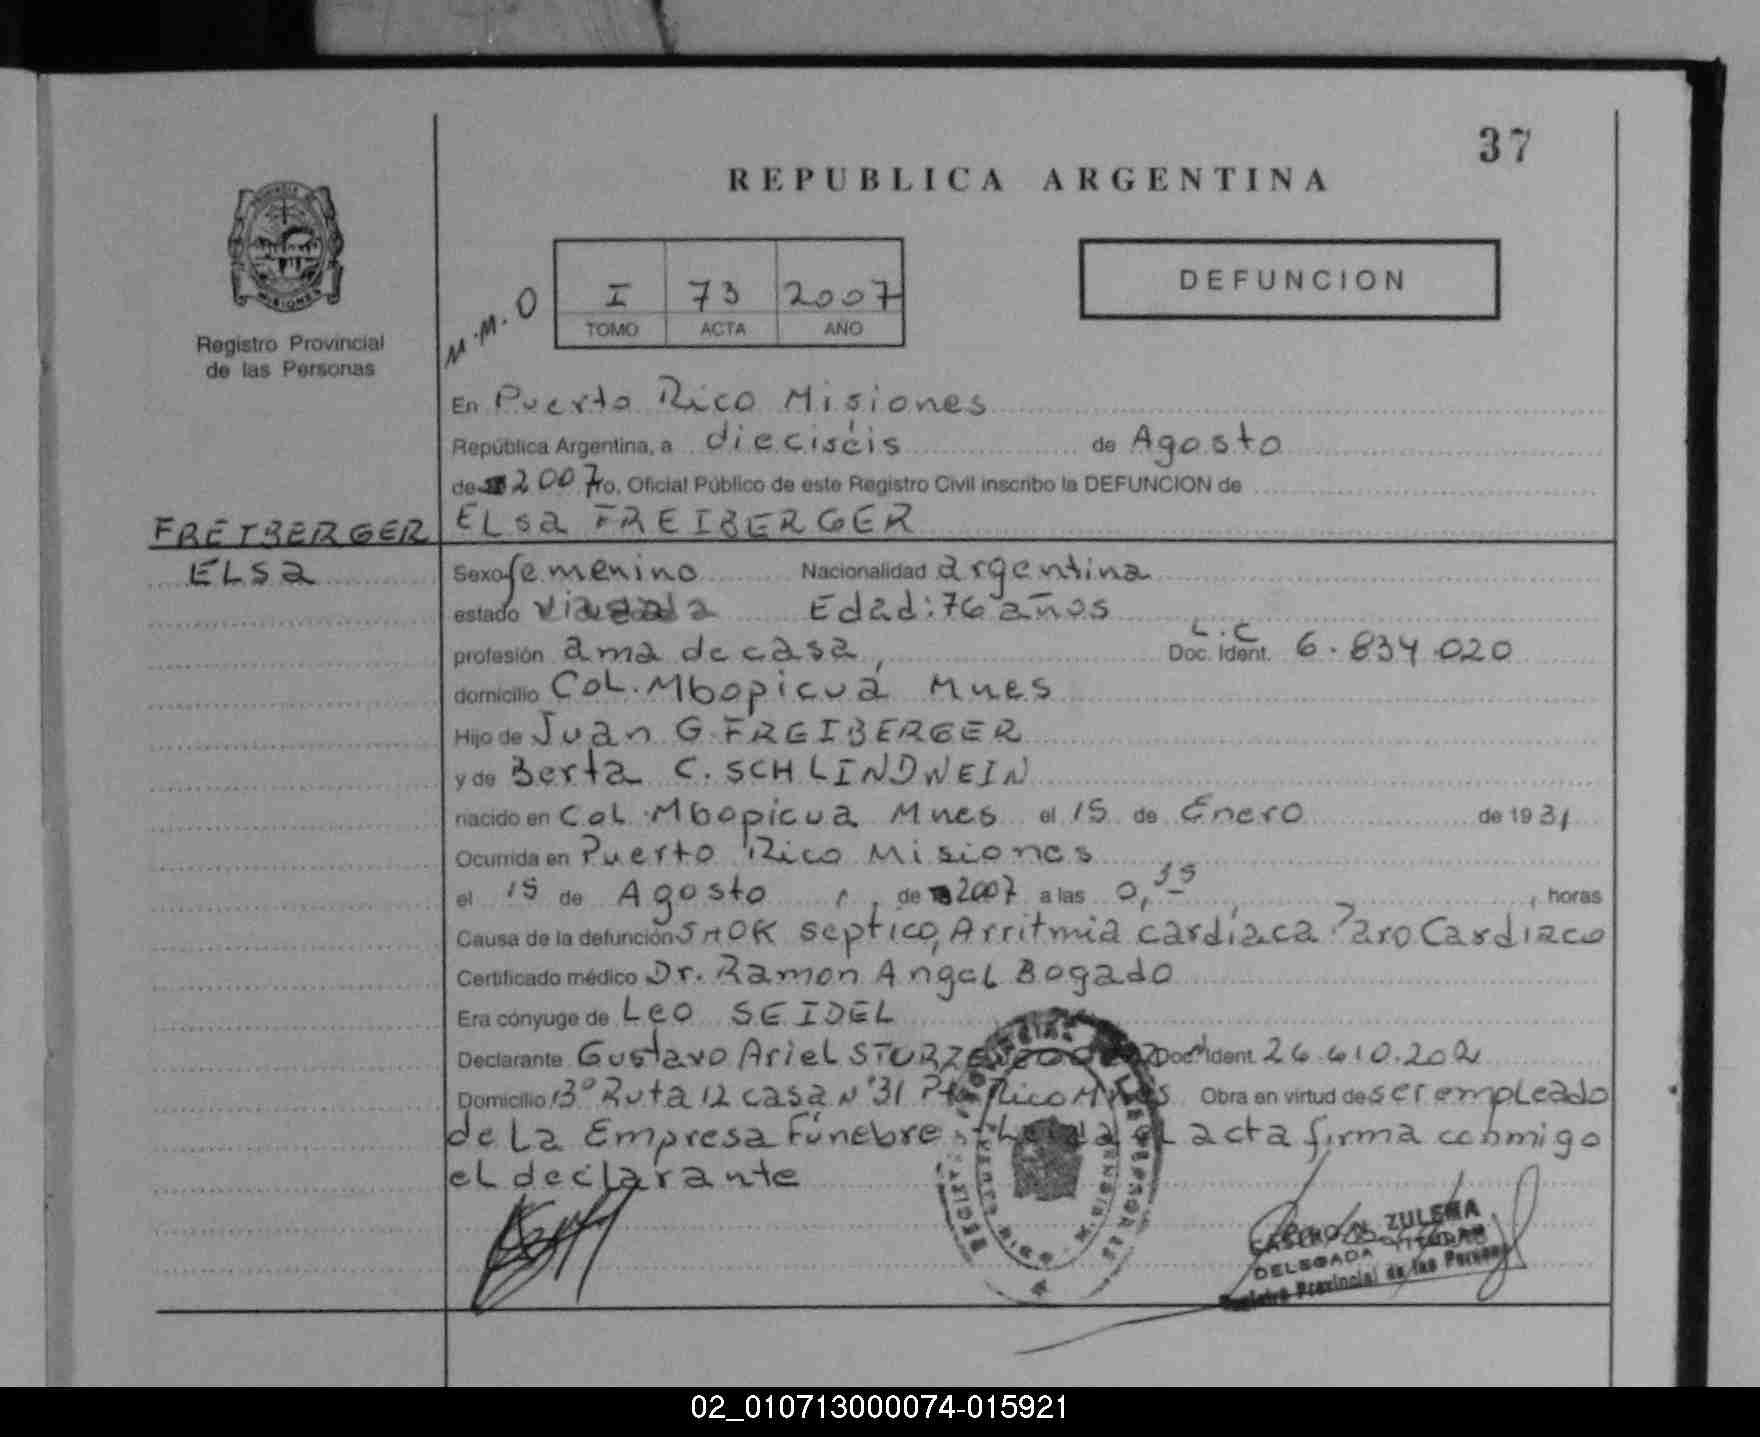 37
REPUBLICA ARGENTINA
PROVINCIA
MISIONES
Registro Provincial
de las Personas
M.M.O
I 73 2007
TOMO ACTA AÑO
DEFUNCION
En Puerto Rico Misiones
República Argentina, a dieciséis de Agosto
de 2007 Yo, Oficial Público de este Registro Civil inscribo la DEFUNCION de
FREIBERGER
ELSa FREIBERGER
ELSa
Sexo femenino Nacionalidad argentina
estado viuda Edad: 76 años
profesión ama de casa, L.C Doc. Ident. 6.834.020
domicilio Col. Mbopicuá Mnes
Hijo de Juan G. FREIBERGER
y de Berta C. SCHLINDWEIN
nacido en Col. Mbopicua Mnes el 15 de Enero de 1931
Ocurrida en Puerto Rico Misiones
el 15 de Agosto, de 2007 a las 0,35, horas
Causa de la defunción SHOK septico, Arritmia cardíaca Paro Cardiaco
Certificado médico Dr. Ramon Angel Bogado
Era cónyuge de Leo SEIDEL
Declarante Gustavo Ariel Doc. Ident. 26.610.202
Domicilio Bº Ruta 12 casa Nº 31 Pto Rico Mnes Obra en virtud de ser empleado
de La Empresa Fúnebre Leida el acta firma conmigo
el declarante
CASTRO N. ZULEMA
DELEGADA TITULAR
Registro Provincial de las Personas
02_010713000074-015921